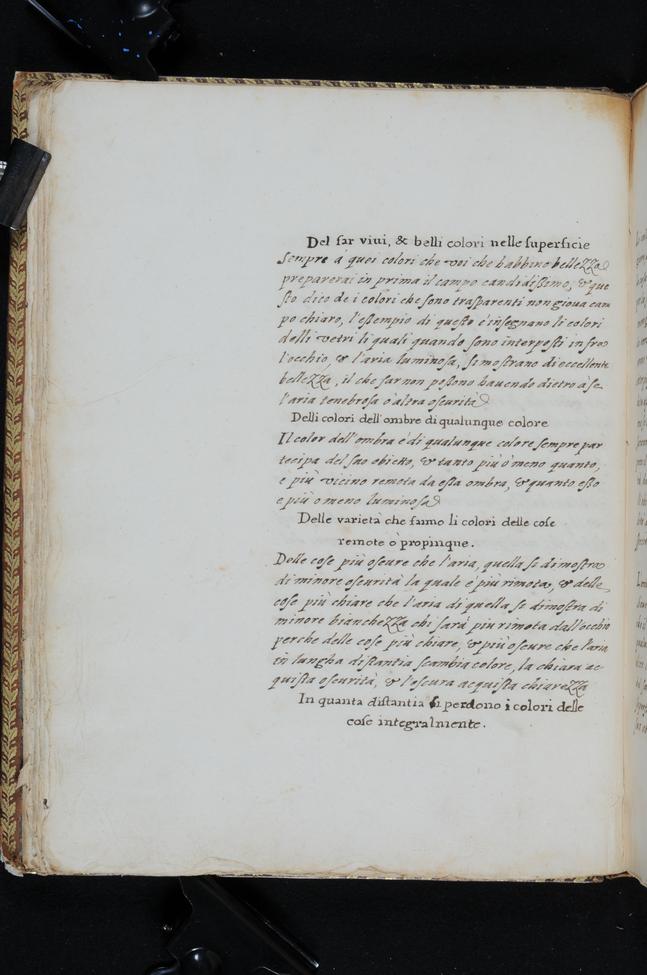 Del far viui, & belli colori nelle superficie
Sempre à quei colori che voi che habbino bellezza
preparerai in prima il campo candidissimo, & que
sto dico de i colori che sono trasparenti non gioua cam
po chiaro, l'essempio di questo c'insegnano li colori
delli vetri li quali quando sono interposti infra
l'occhio, & l'aria luminosa, si mostrano di eccellente
bellezza, il che far non possono hauendo dietro à se
l'aria tenebrosa ò altra oscurità
Delli colori dell'ombre di qualunque colore
Il color dell'ombra é di qualunque colore sempre par
tecipa del suo obietto, & tanto più ò meno quanto,
e più vicino remota da essa ombra, & quanto esso
e più o meno luminosa
Delle varietà che fanno li colori delle cose
remote ò propinque.
Delle cose più oscure che l'aria, quella si dimostra
di minore oscurità la quale e più rimota, & delle
cose più chiare che l'aria di quella si dimostra di
minore bianchezza chi sarà piu rimota dall'occhio
perche delle cose più chiare, & più oscure che l'aria
in lungha distantia scambia colore, la chiara ac
quista oscurità, & l'oscura acquista chiarezza
In quanta distantia si perdono i colori delle
cose integralmente.